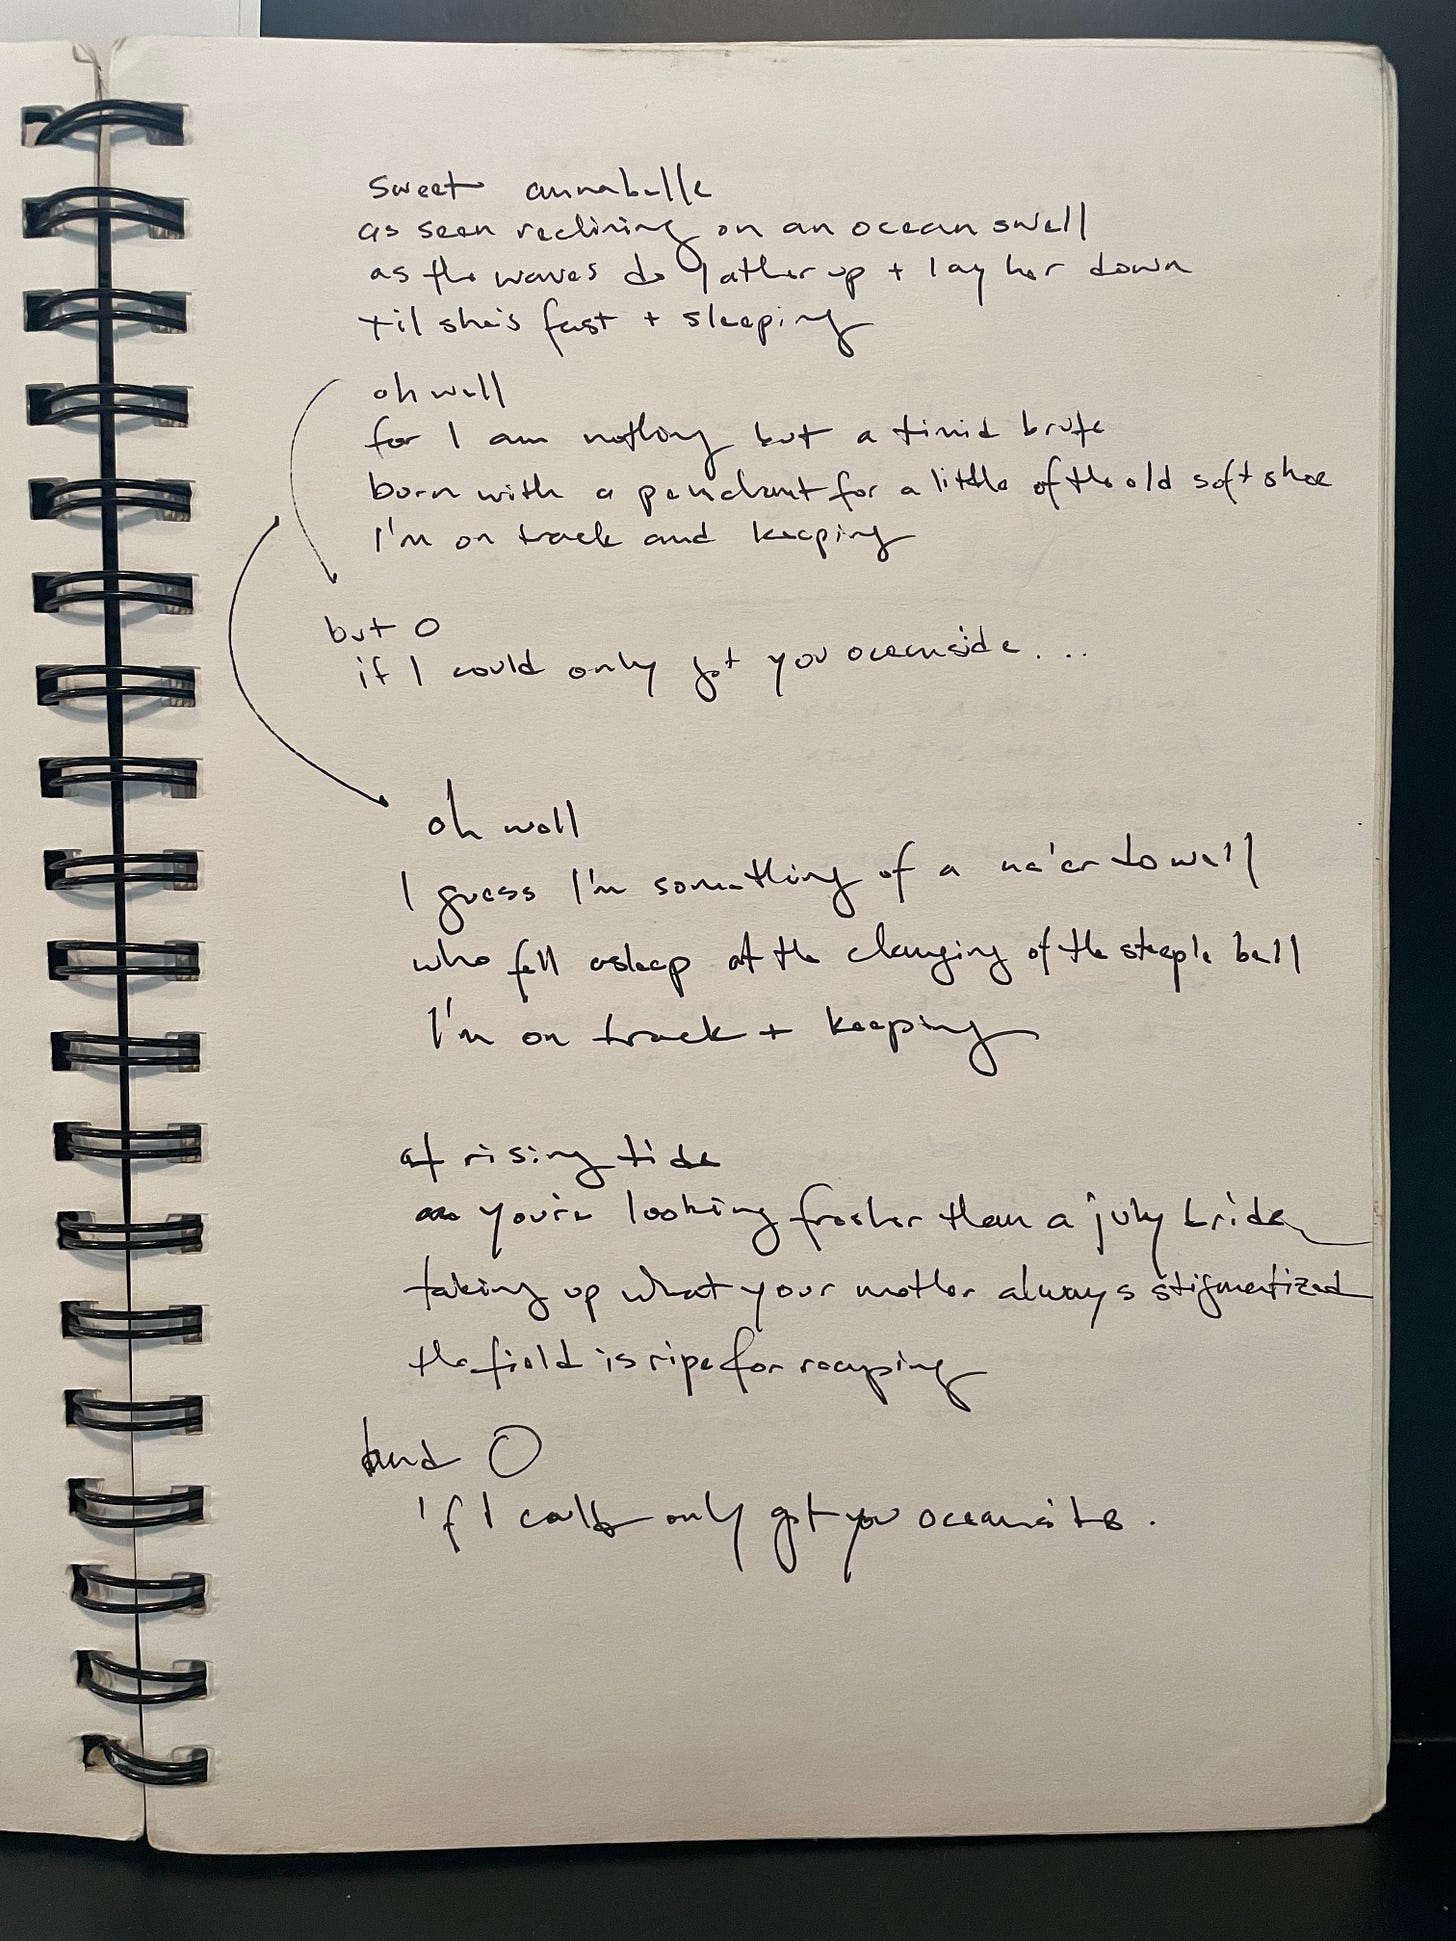 sweet annabelle
as seen reclining on an ocean swell
as the waves do gather up + lay her down
til she's fast + sleeping
oh well
for I am nothing but a timid brute
born with a penchant for a little of the old soft shoe
I'm on track and keeping
but O
if I could only get you oceanside...
oh well
I guess I'm something of a ne'er do well
who fell asleep at the clanging of the steeple bell
I'm on track + keeping
at rising tide
you're looking fresher than a july bride
taking up what your mother always stigmatized
the field is ripe for reaping
and O
if I could only get you oceanside.